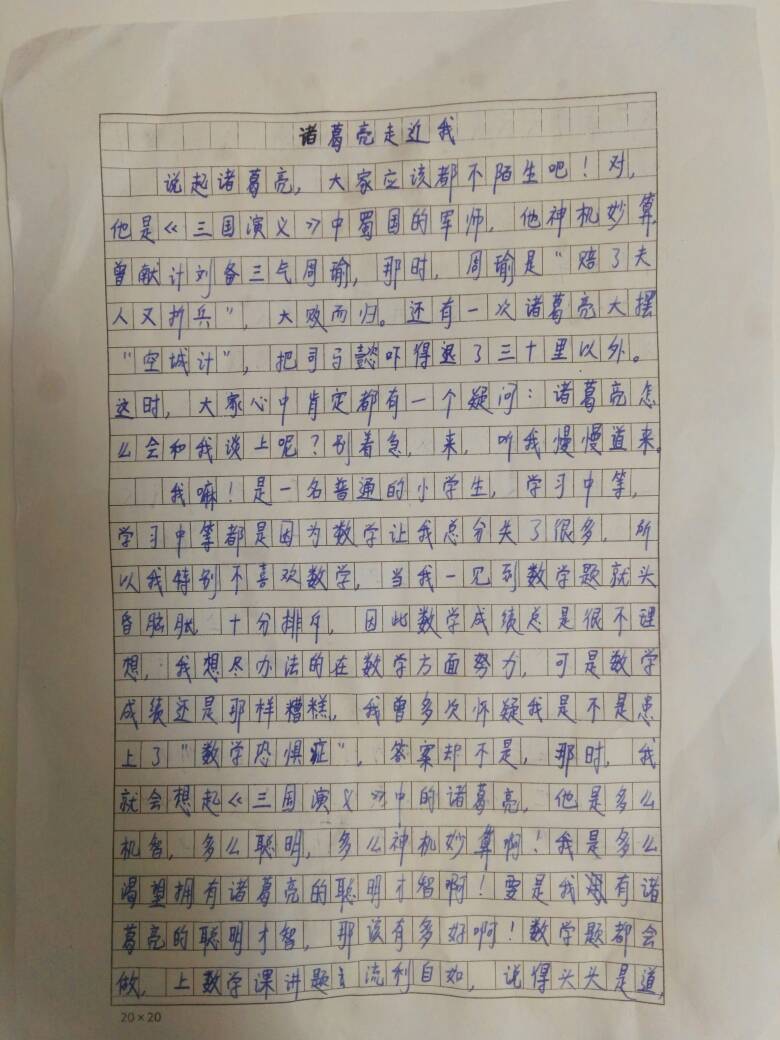 诸葛亮走近我
说起诸葛亮，大家应该都不陌生吧！对，
他是《三国演义》中蜀国的军师，他神机妙算，
曾献计刘备三气周瑜，那时，周瑜是“赔了夫
人又折兵”，大败而归。还有一次诸葛亮大摆
“空城计”，把司马懿吓得退了三十里以外。
这时，大家心中肯定都有一个疑问：诸葛亮怎
么会和我谈上呢？别着急，来，听我慢慢道来。
我嘛！是一名普通的小学生，学习中等，
学习中等都是因为数学让我总分失了很多，所
以我特别不喜欢数学，当我一见到数学题就头
昏脑胀，十分排斥，因此数学成绩总是很不理
想，我想尽办法的在数学方面努力，可是数学
成绩还是那样糟糕，我曾多次怀疑我是不是患
上了“数学恐惧症”，答案却不是，那时，我
就会想起《三国演义》中的诸葛亮，他是多么
机智，多么聪明，多么神机妙算啊！我是多么
渴望拥有诸葛亮的聪明才智啊！要是我拥有诸
葛亮的聪明才智，那该有多好啊！数学题都会
做，上数学课讲题流利自如，说得头头是道，
20×20